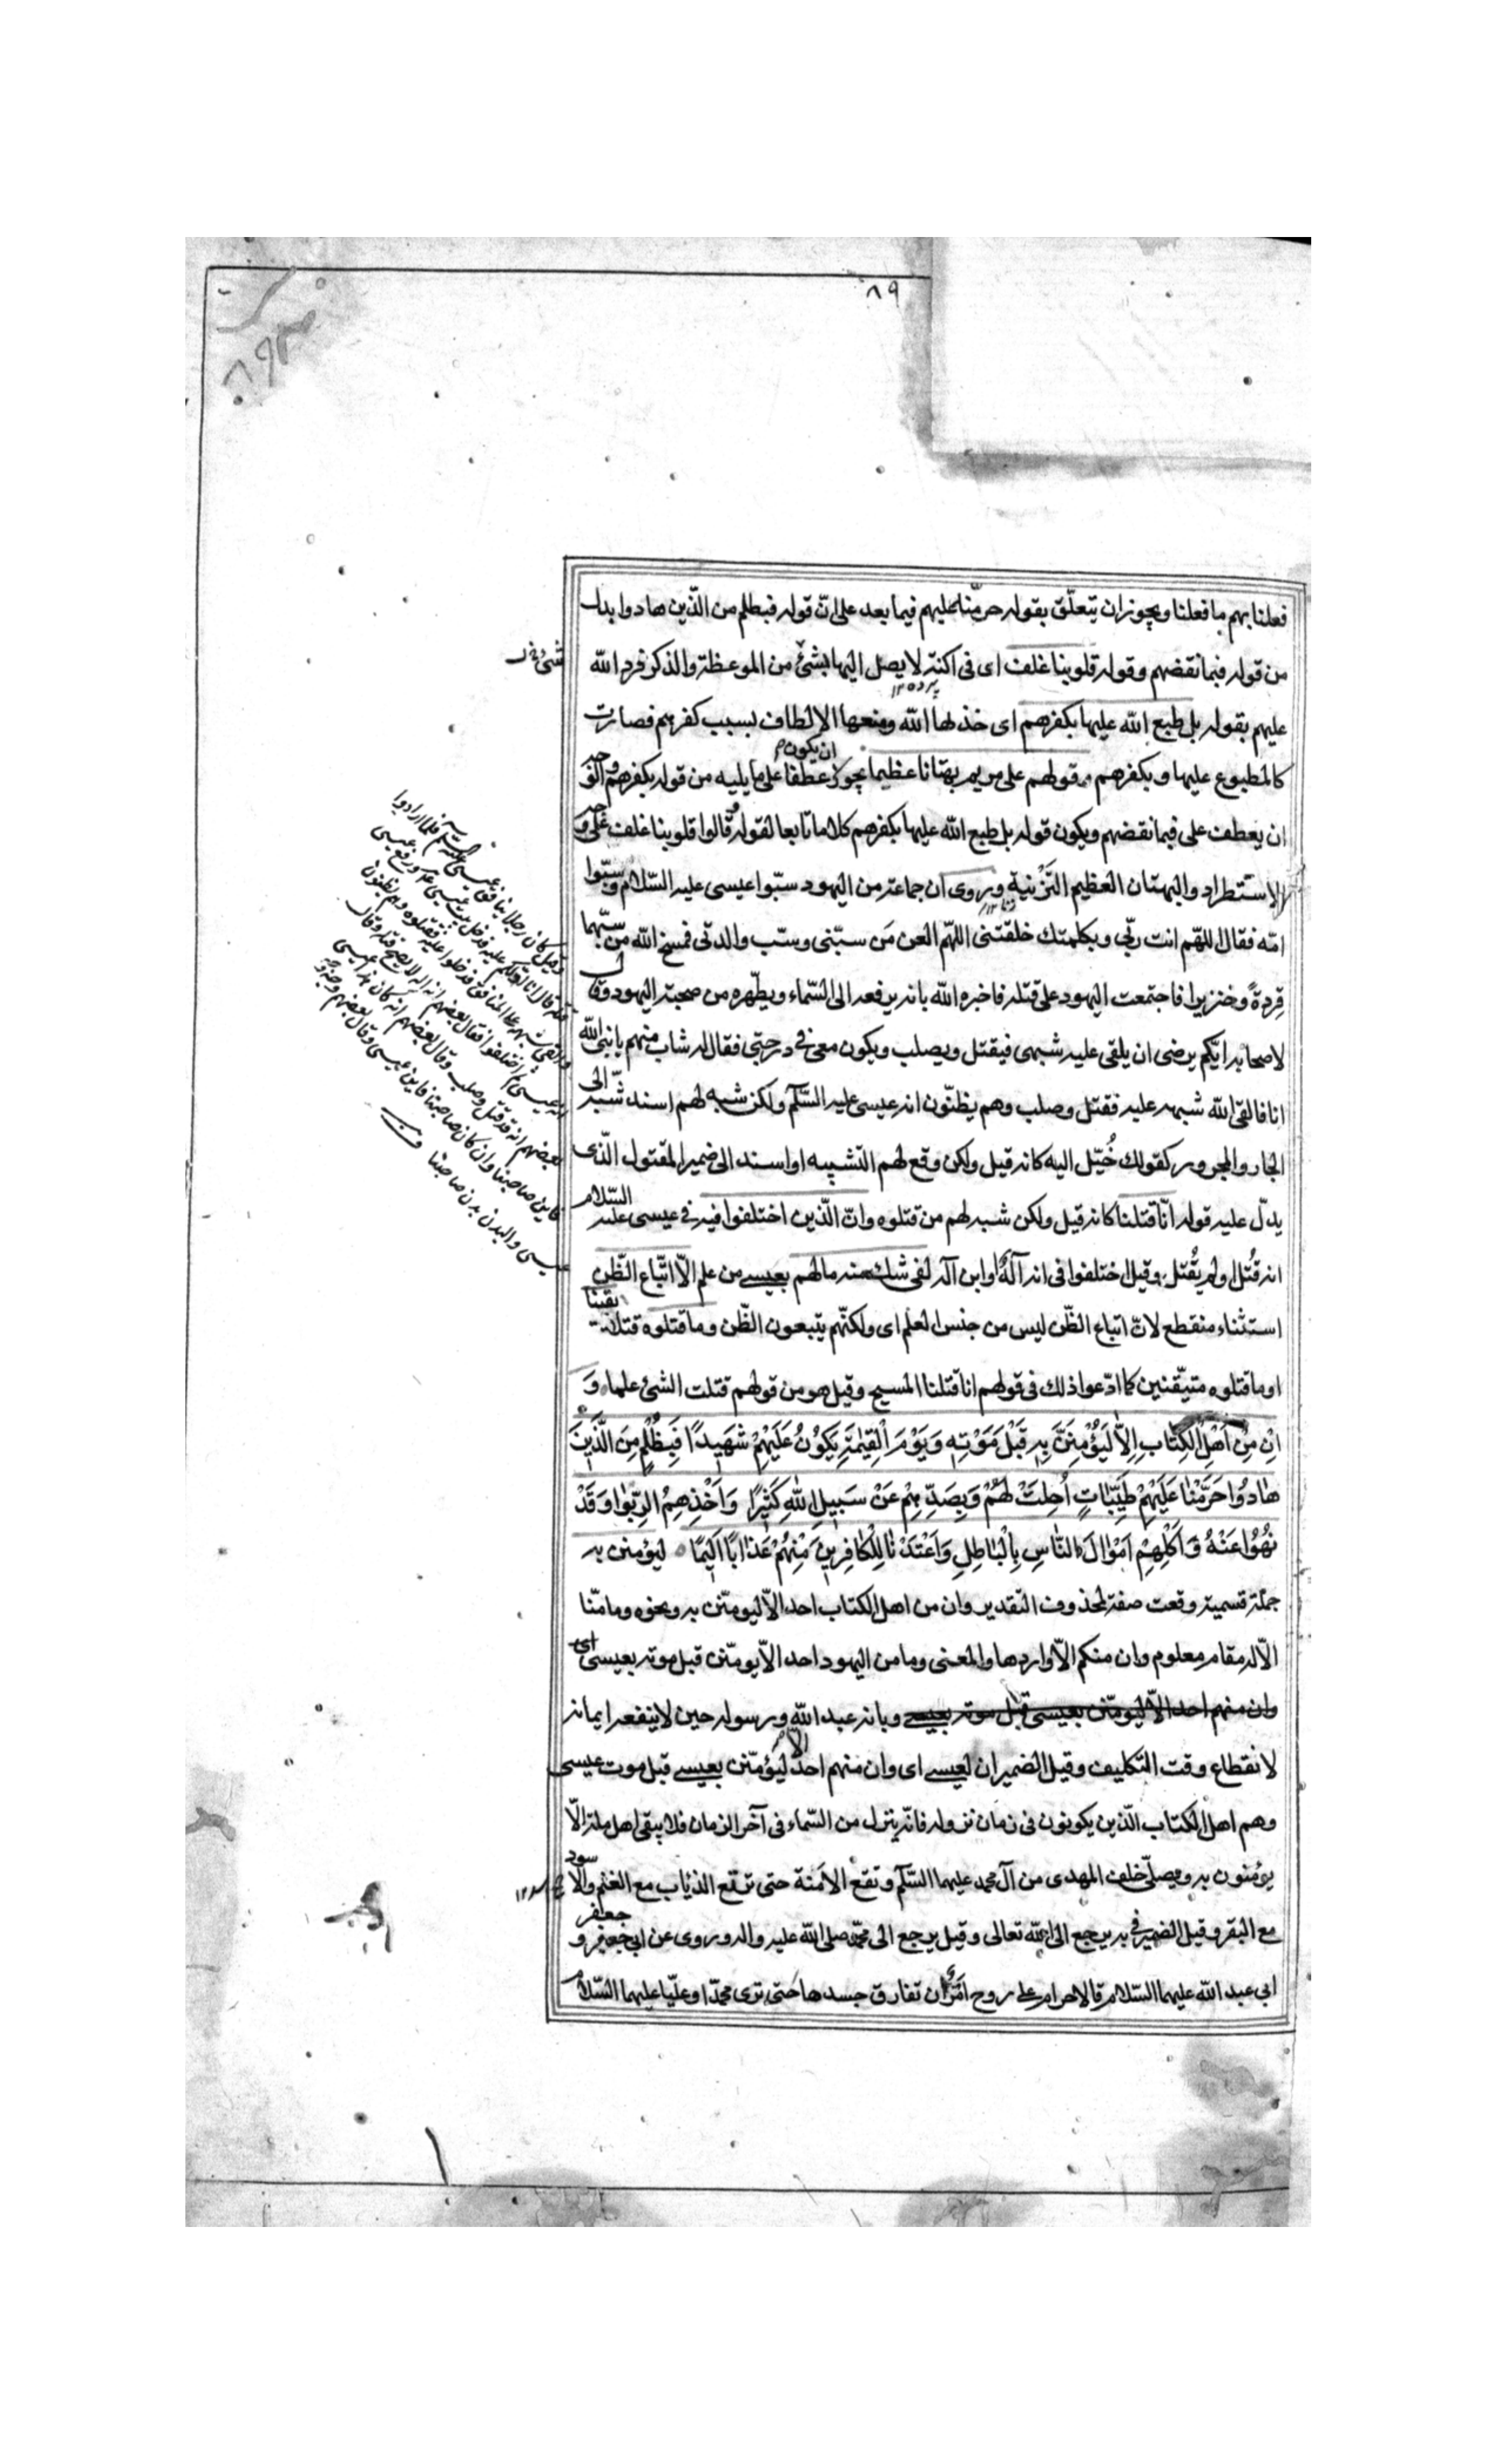 ٨٩
فعلنا بهم ما فعلنا ويجوز ان يتعلّق بقوله حرّمنا عليهم فيما بعد على انّ قوله فبظلم من الذّين هادوا بدل
من قوله فبما نقضهم وقوله قلوبنا غلف اى فى اكنّة لا يصل اليها بشئ من الموعظة والذكر فرد الله
عليهم بقوله بل طبع الله عليها بكفرهم اى خذلها الله ومنعها الالطاف بسبب كفرهم فصارت
كالمطبوع عليها وبكفرهم وقولهم على مريم بهتانا عظيما يجوز ان يكون عطفا على ما يليه من قوله بكفرهم والوجه
ان يعطف على فبما نقضهم ويكون قوله بل طبع الله عليها بكفرهم كلاما تابعا لقوله وقالوا قلوبنا غلف على وجه
الاستطراد والبهتان العظيم التزنية وروى ان جماعة من اليهود سبّوا عيسى عليه السّلام وسبّوا
امّه فقال اللهم انت ربّى وبكلمتك خلقتنى اللهم العن من سبّنى وسبّ والدتى فمسخ الله من سبّهما
قردةً وخنزيرا فاجتمعت اليهود على قتله فاخبره الله بانه يرفعه الى السّماء ويطهّره من صحبة اليهود وقال
لاصحابه ايّكم يرضى ان يلقى عليه شبهى فيقتل ويصلب ويكون معى فى درجتى فقال له شاب منهم يا نبى الله
انا فالقى الله شبهه عليه فقتل وصلب وهم يظنّون انه عيسى عليه السّلم ولكن شبه لهم اسند شبّه الى
الجار والمجرور كقولك خُيّل اليه كانه قيل ولكن وقع لهم التشبيه او اسند الى ضمير المقتول الذّى
يدلّ عليه قوله انّا قتلنا كانه قيل ولكن شبه لهم من قتلوه وانّ الذّين اختلفوا فيه فى عيسى عليه السّلام
انه قُتل او لم يُقتل وقيل اختلفوا فى انه آلهٌ او ابن آله لفى شك منه ما لهم بعيسى من علم الاّ اتّباع الظّن
استثناء منقطع لانّ اتباع الظّن ليس من جنس العلم اى ولكنّهم يتبعون الظّن وما قتلوه قتلا يقينا
او ما قتلوه متيقّنين كما ادّعوا ذلك فى قولهم انا قتلنا المسيح وقيل هو من قولهم قتلت الشئ علما وَ
اِنْ مِنْ اَهْلِ الكِتَابِ اِلاَّ لَيُؤْمِنَنَّ بِهِ قَبْلَ مَوْتِهِ وَيَوْمَ الْقِيٰمَةِ يَكُونُ عَلَيْهِمْ شَهِيدًا فَبِظُلْمٍ مِنَ الَّذِينَ
هَادُوا حَرَّمْنَا عَلَيْهِمْ طَيِّبَاتٍ اُحِلَتْ لَهُمْ وَبِصَدِّهِمْ عَنْ سَبِيلِ اللهِ كَثِيرًا وَاَخْذِهِمُ الرِّبٰوا وَقَدْ
نُهُوا عَنْهُ وَاَكْلِهِمْ اَمْوَالَ النَّاسِ بِالْبَاطِلِ وَاَعْتَدْنَا لِلْكَافِرِينَ مِنْهُمْ عَذَابًا اَلِيمًا ليؤمنن به
جملة قسمية وقعت صفة لمحذوف التقدير وان من اهل الكتاب احد الاّ ليومنّن به ونحوه وما منّا
الاّ له مقام معلوم وان منكم الاّ واردها والمعنى وما من اليهود احد الاّ يومنّن قبل موته بعيسى اى
وان منهم احد الاّ ليومنّن بعيسى قبل موته بعيسى وبانه عبد الله ورسوله حين لا ينفعه ايمانه
لانقطاع وقت التكليف وقيل الضميران لعيسى اى وان منهم احد الا ليؤمنّن بعيسى قبل موت عيسى
وهم اهل الكتاب الذّين يكونون فى زمان نزوله فانّه ينزل من السّماء فى آخر الزمان فلا يبقى اهل ملة الاّ
يؤمنون به ويصلّى خلف المهدى من آل محمد عليهما السّلم وتقع الامَنة حتى ترتع الذئاب مع الغنم والاسود
مع البقر وقيل الضمير فى به يرجع الى الله تعالى وقيل يرجع الى محمّد صلى الله عليه واله وروى عن ابى جعفر و
ابى عبد الله عليهما السّلام قالا حرام على روح امرئ ان تفارق جسدها حتى ترى محمدا وعليّا عليهما السّلام
وقيل كان رجلا ينافق عيسى عليه السّلم فلما ارادوا
قتله قال انا ادلكم عليه فدخل بيت عيسى ع ورفع عيسى
والقى شبهه على المنافق فدخلوا عليه فقتلوه وهم يظنون
انه عيسى ثم اختلفوا فقال بعضهم انه اله لا يصح قتله وقال
بعضهم انه قد قتل وصلب وقال بعضهم ان كان هذا عيسى
فاين صاحبنا وان كان صاحبنا فاين عيسى وقال بعضهم الوجه وجه
عيسى والبدن بدن صاحبنا